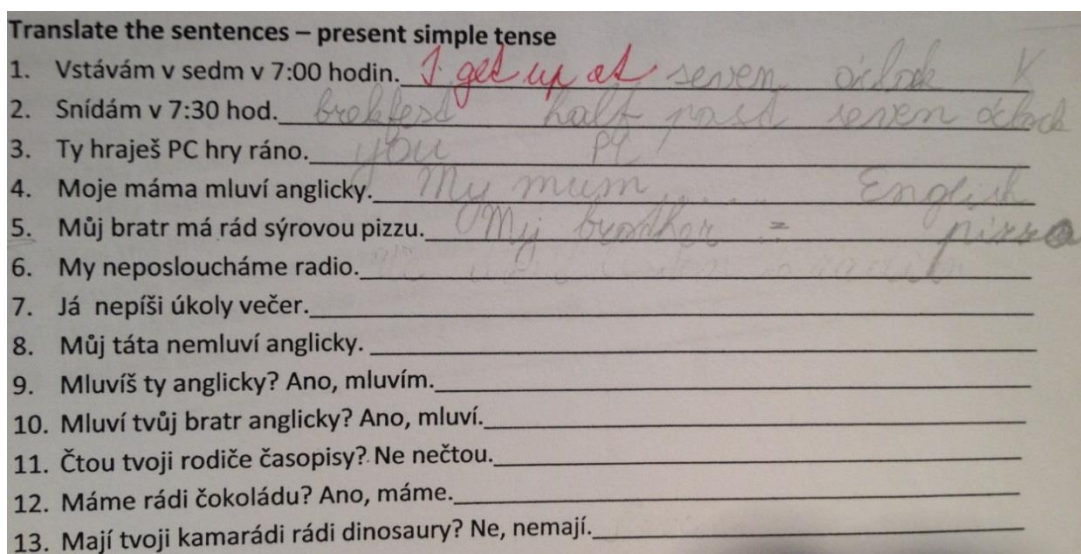 Translate the sentences – present simple tense
1. Vstávám v sedm v 7:00 hodin. I get up at seven óclock
2. Snídám v 7:30 hod. brekfest half past seven óclock
3. Ty hraješ PC hry ráno. you PC
4. Moje máma mluví anglicky. My mum English
5. Můj bratr má rád sýrovou pizzu. My brother = pizza
6. My neposloucháme radio.
7. Já nepíši úkoly večer.
8. Můj táta nemluví anglicky.
9. Mluvíš ty anglicky? Ano, mluvím.
10. Mluví tvůj bratr anglicky? Ano, mluví.
11. Čtou tvoji rodiče časopisy? Ne nečtou.
12. Máme rádi čokoládu? Ano, máme.
13. Mají tvoji kamarádi rádi dinosaury? Ne, nemají.